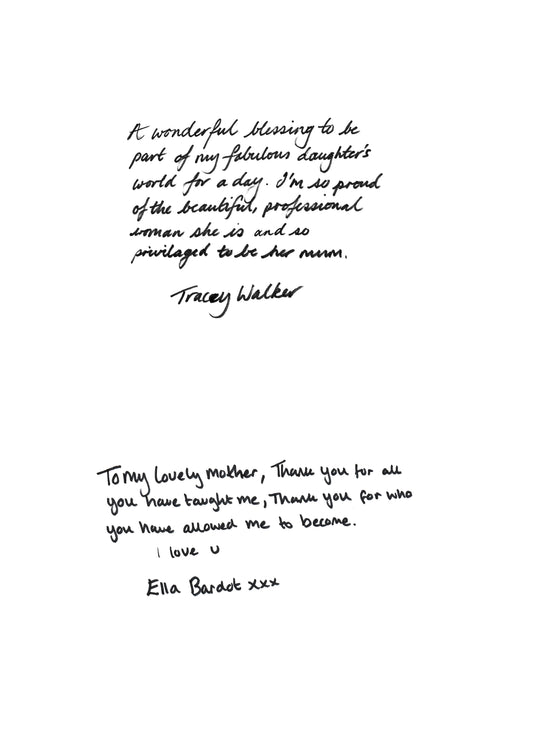 A wonderful blessing to be
part of my fabulous daughter's
world for a day. I'm so proud
of the beautiful, professional
woman she is and so
privilaged to be her mum.
Tracey Walker
To my lovely mother, Thank you for all
you have taught me, Thank you for who
you have allowed me to become.
i love u
Ella Bardot xxx